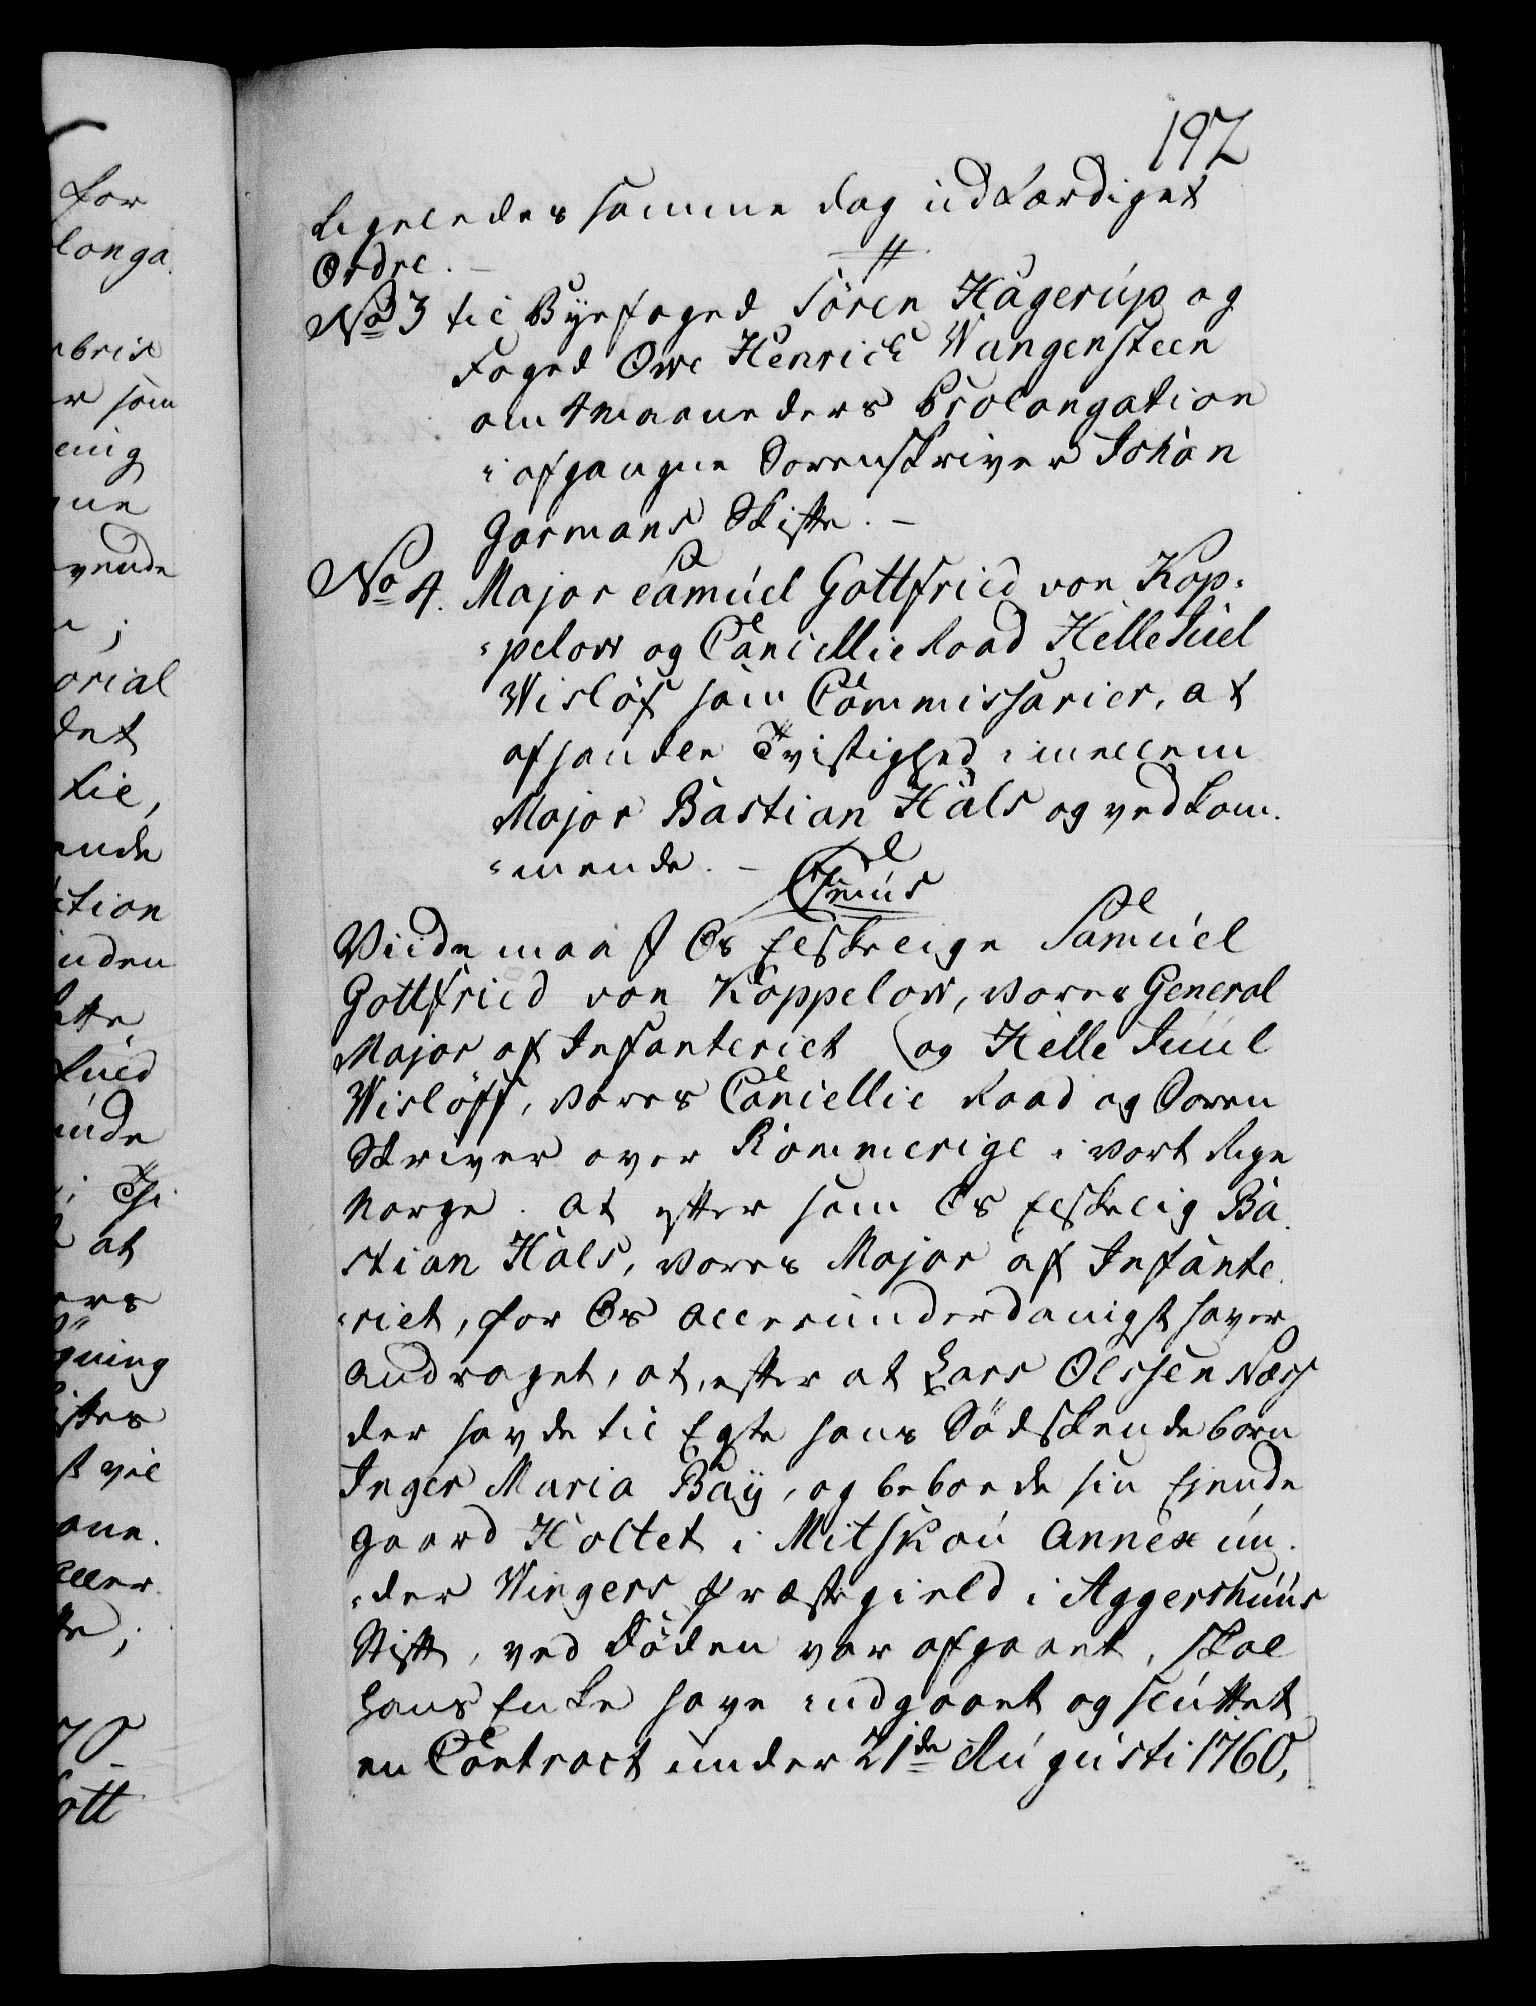 192
ligeledes samme dag udfærdiget
Ordre. -
No 3 til Byefoged Sören Hagerup og
Foged Owe Henrich Wangensteen
om 4 maaneders Prolongation
i afgangne Sorenskriver Johan
Garmans Skifte. -
No 4. Major Samuel Gottfried von Kop-
-pelow og Cancellie Raad Helle Juel
Wislöf som Commissarier, at
afhandle Tvistighed imellem
Major Bastian Hals og vedkom-
-mende. -
Viide maa I Os Elskelige Samuel
Gottfried von Koppelow, vores General
Major af Infanteriet og Helle Juul
Wislöff, vores Cancellie Raad og Soren
Skriver over Rommerige i vort Rige
Norge. at efter som Os Elskelig Ba-
stian Hals, vores Major af Infante-
-riet, for Os allerunderdanigst haver
andraget, at, efter at Lars Olssen Næss
der havde til Egte hans Södskendebarn
Inger Maria Baÿ, og beboede sin Ejende
gaard Holtet i Mitskou Annex un-
-der Wingers Præstegield i Aggershuus
Stift, ved Döden var afgaaet, skal
hans Enke have indgaaet og sluttet
en Contract under 21de Augusti 1760,
for
longa
-bris
er som
enig
ne
vende
orial
det
til,
ende
ition
nden
ette
unde
at
ers
gning
istes
st vil
one.
eller
70
ott